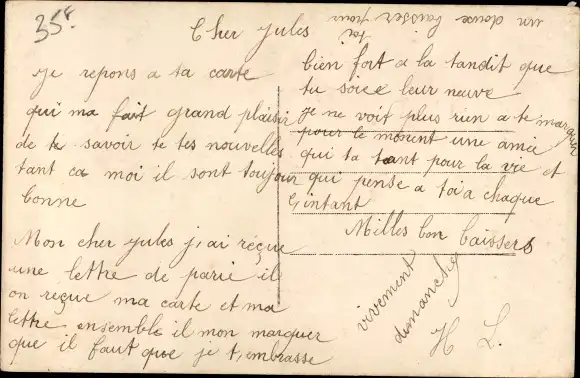 35f
un douse baisser pour
toi
Cher Jules
Je repons a ta carte
qui ma fait grand plaisir
de te savoir te tes nouvelles
tant ca moi il sont toujour
bonne
Mon cher Jules j,ai réçue
une lettre de parie il
on réçue ma carte et ma
lettre ensemble il mon marquer
que il faut que je t,embrasse
bien fort a la tandit que
tu soice leur neuve
Je ne voit plus rien a te marquer
pour le moment une amie
qui ta tant pour la vie et
qui pense a toi a chaque
l,intant
Milles bon baissers
vivement
dimanche
H L.